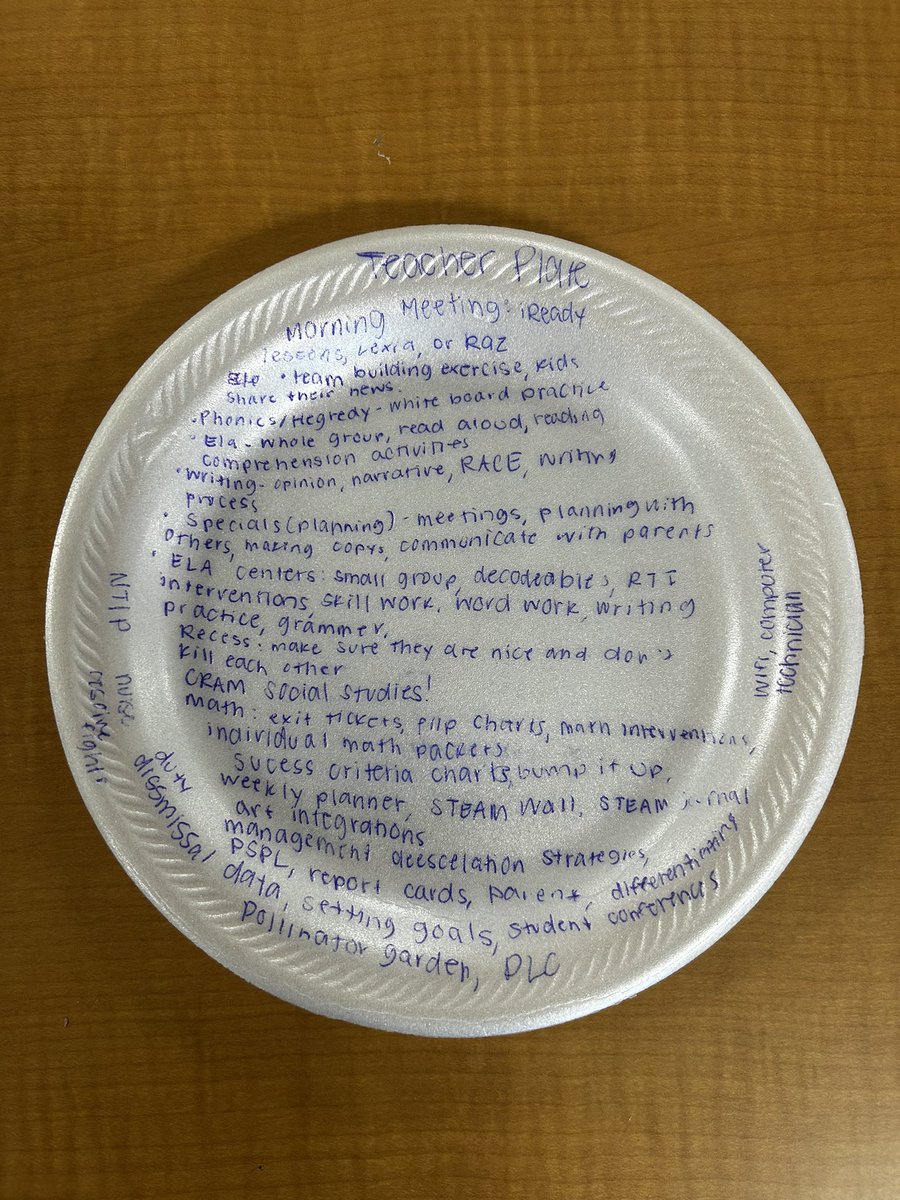 Teacher Plate
Morning Meeting: iReady
lessons, Lexia, or Raz
• team building exercise, kids
share their news.
• Phonics/Hegredy - white board practice
• Ela - whole group, read aloud, reading
comprehension activities
• writing - opinion, narrative, RACE, writing
process
• Specials (planning) - meetings, planning with
others, making copys, communicate with parents
• ELA centers: small group, decodeables, RTI
interventions, skill work, word work, writing
practice, grammer,
Recess: make sure they are nice and don't
kill each other
CRAM social studies!
math: exit tickets, flip charts, math interventions,
individual math packets
Sucess criteria charts, bump it up,
weekly planner, STEAM Wall, STEAM jurnal
art integrations
management deescelation strategies,
PSPL, report cards, parent, differentiating
data, setting goals, student conferences
pollinator garden, DLC
NTIP
nurse
fights
duty
dissmissal
wifi, computer
technician